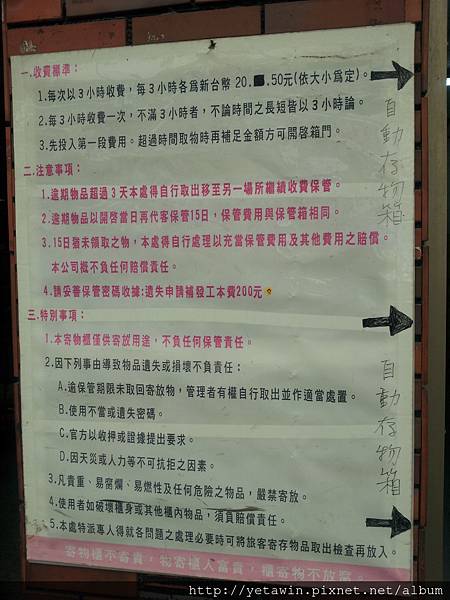 一.收費標準：
1.每次以3小時收費，每3小時各為新台幣 20.　.50元(依大小為定)。
2.每3小時收費一次，不滿3小時者，不論時間之長短皆以3小時論。
3.先投入第一段費用。超過時間取物時再補足金額方可開啓箱門。
二.注意事項：
1.逾期物品超過3天本處得自行取出移至另一場所繼續收費保管。
2.逾期物品以開啓當日再代客保管15日，保管費用與保管箱相同。
3.15日猶未領取之物，本處得自行處理以充當保管費用及其他費用之賠償。
本公司概不負任何賠償責任。
4.請妥善保管密碼收據:遺失申請補發工本費200元。
三.特別事項：
1.本寄物櫃僅供寄放用途，不負任何保管責任。
2.因下列事由導致物品遺失或損壞不負責任：
A.逾保管期限未取回寄放物，管理者有權自行取出並作適當處置。
B.使用不當或遺失密碼。
C.官方以收押或證據提出要求。
D.因天災或人力等不可抗拒之因素。
3.凡貴重、易腐爛、易燃性及任何危險之物品，嚴禁寄放。
4.使用者如破壞櫃身或其他櫃內物品，須負賠償責任。
5.本處特派專人得就各問題之處理必要時可將旅客寄存物品取出檢查再放入。
寄物櫃不寄貴，物寄櫃人富貴，櫃寄物不放窩。
自動存物箱
自動存物箱
http://yetawin.pixnet.net/album